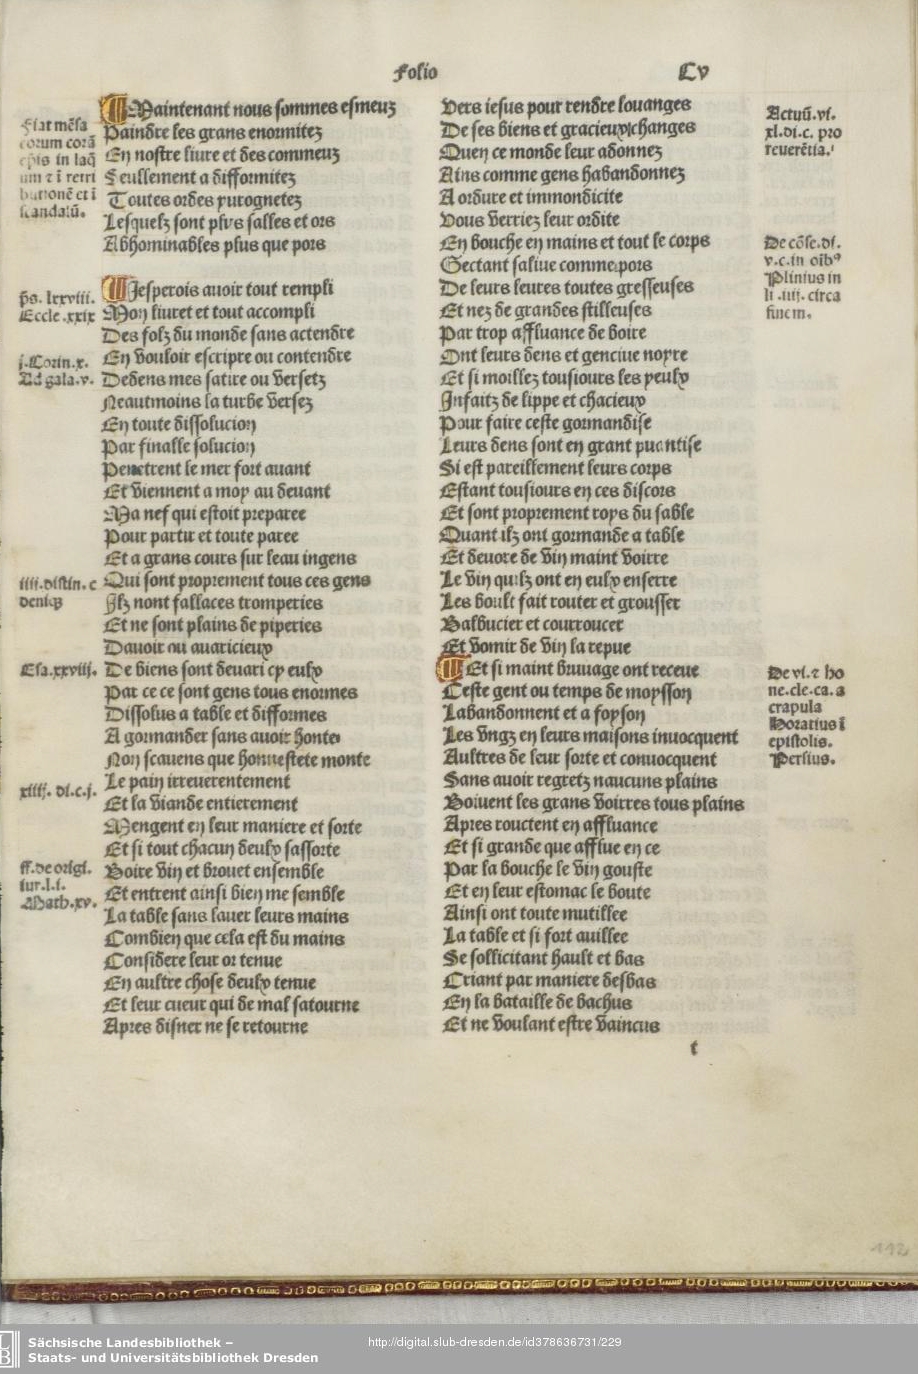 Folio
CV
Fiat mēsa
eorum corā
ip̄is in laq̄
um ⁊ ī retri
butionē et ī
scandalū.
p̄s. lxxviii.
Eccle.xxix
j.Corin.x.
Ad gala.v.
iiii.distin.c
deniqȝ
Esa.xxviij.
xiiij. di.c.j.
ff.de origi.
iur.l.i.
Math.xv.
Maintenant nous sommes esmeuz
Paindre les grans enormitez
En nostre liure et des commeuz
Seullement a difformitez
Toutes ordes yurognetez
Lesquelz sont plus salles et ors
Abhominables plus que pors
Iesperois auoir tout rempli
Mon liuret et tout accompli
Des folz du monde sans actendre
En vouloir escripre ou contendre
Dedens mes satire ou versetz
Neautmoins la turbe versez
En toute dissolucion
Par finalle solucion
Penetrent le mer fort auant
Et viennent a moy au deuant
Ma nef qui estoit preparee
Pour partir et toute paree
Et a grans cours sur leau ingens
Qui sont proprement tous ces gens
Ilz nont fallaces tromperies
Et ne sont plains de piperies
Dauoir ou auaricieux
De biens sont deuari cy eulx
Par ce ce sont gens tous enormes
Dissolus a table et difformes
A gormander sans auoir honte
Non scauens que honnestete monte
Le pain irreuerentement
Et la viande entierement
Mengent en leur maniere et sorte
Et si tout chacun deulx sassorte
Boire vin et brouet ensemble
Et entrent ainsi bien me semble
La table sans lauer leurs mains
Combien que cela est du mains
Considere leur or tenue
En aultre chose deulx tenue
Et leur cueur qui de mal satourne
Apres disner ne se retourne
Vers iesus pour rendre louanges
De ses biens et gracieux changes
Quen ce monde leur adonnez
Ains comme gens habandonnez
A ordure et immondicite
Vous verriez leur ordite
En bouche en mains et tout le corps
Gectant saliue comme pors
De leurs leures toutes gresseuses
Et nez de grandes stilleuses
Par trop affluance de boire
Ont leurs dens et genciue noyre
Et si moillez tousiours les yeulx
Infaitz de lippe et chacieux
Pour faire ceste gormandise
Leurs dens sont en grant puantise
Si est pareillement leurs corps
Estant tousiours en ces discors
Et sont proprement roys du sable
Quant ilz ont gormande a table
Et deuore de vin maint voirre
Le vin quilz ont en eulx enserre
Les boult fait router et grousser
Balbucier et courroucer
Et vomir de vin la repue
Et si maint bruuage ont receue
Ceste gent ou temps de moysson
Labandonnent et a foyson
Les vngz en leurs maisons inuocquent
Aultres de leur sorte et conuocquent
Sans auoir regretz naucuns plains
Boiuent les grans voirres tous plains
Apres rouctent en affluance
Et si grande que afflue en ce
Par la bouche le vin gouste
Et en leur estomac le boute
Ainsi ont toute mutillee
La table et si fort auillee
Se sollicitant hault et bas
Criant par maniere desbas
En la bataille de bachus
Et ne voulant estre vaincus
t
Actuū.vi.
xl.di.c. pro
reuerētia.
De cōse.di.
v.c.in oībꝰ
Plinius in
li .iiij. circa
finem.
De vi.⁊ ho
ne.cle.ca. a
crapula
Horatius ī
epistolis.
Persius.
112
Sächsische Landesbibliothek –
Staats- und Universitätsbibliothek Dresden
http://digital.slub-dresden.de/id378636731/229